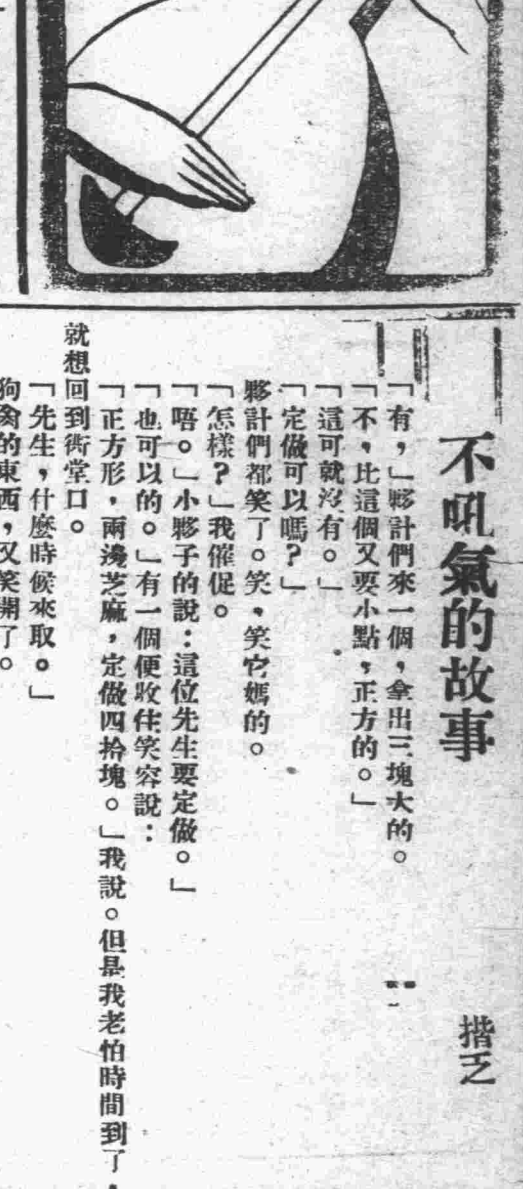 不吼氣的故事
揩乏
「有，」夥計們來一個，拿出三塊大的。
「不，比這個又要小點，正方的。」
「這可就沒有。」
「定做可以嗎？」
夥計們都笑了。笑，笑它媽的。
「怎樣？」我催促。
「唔。」小夥子的說：這位先生要定做。」
「也可以的。」有一個便收住笑容說：
「正方形，兩邊芝麻，定做四拾塊。」我說。但是我老怕時間到了，
就想回到衖堂口。
「先生，什麼時候來取。」
狗禽的東西，又笑開了。